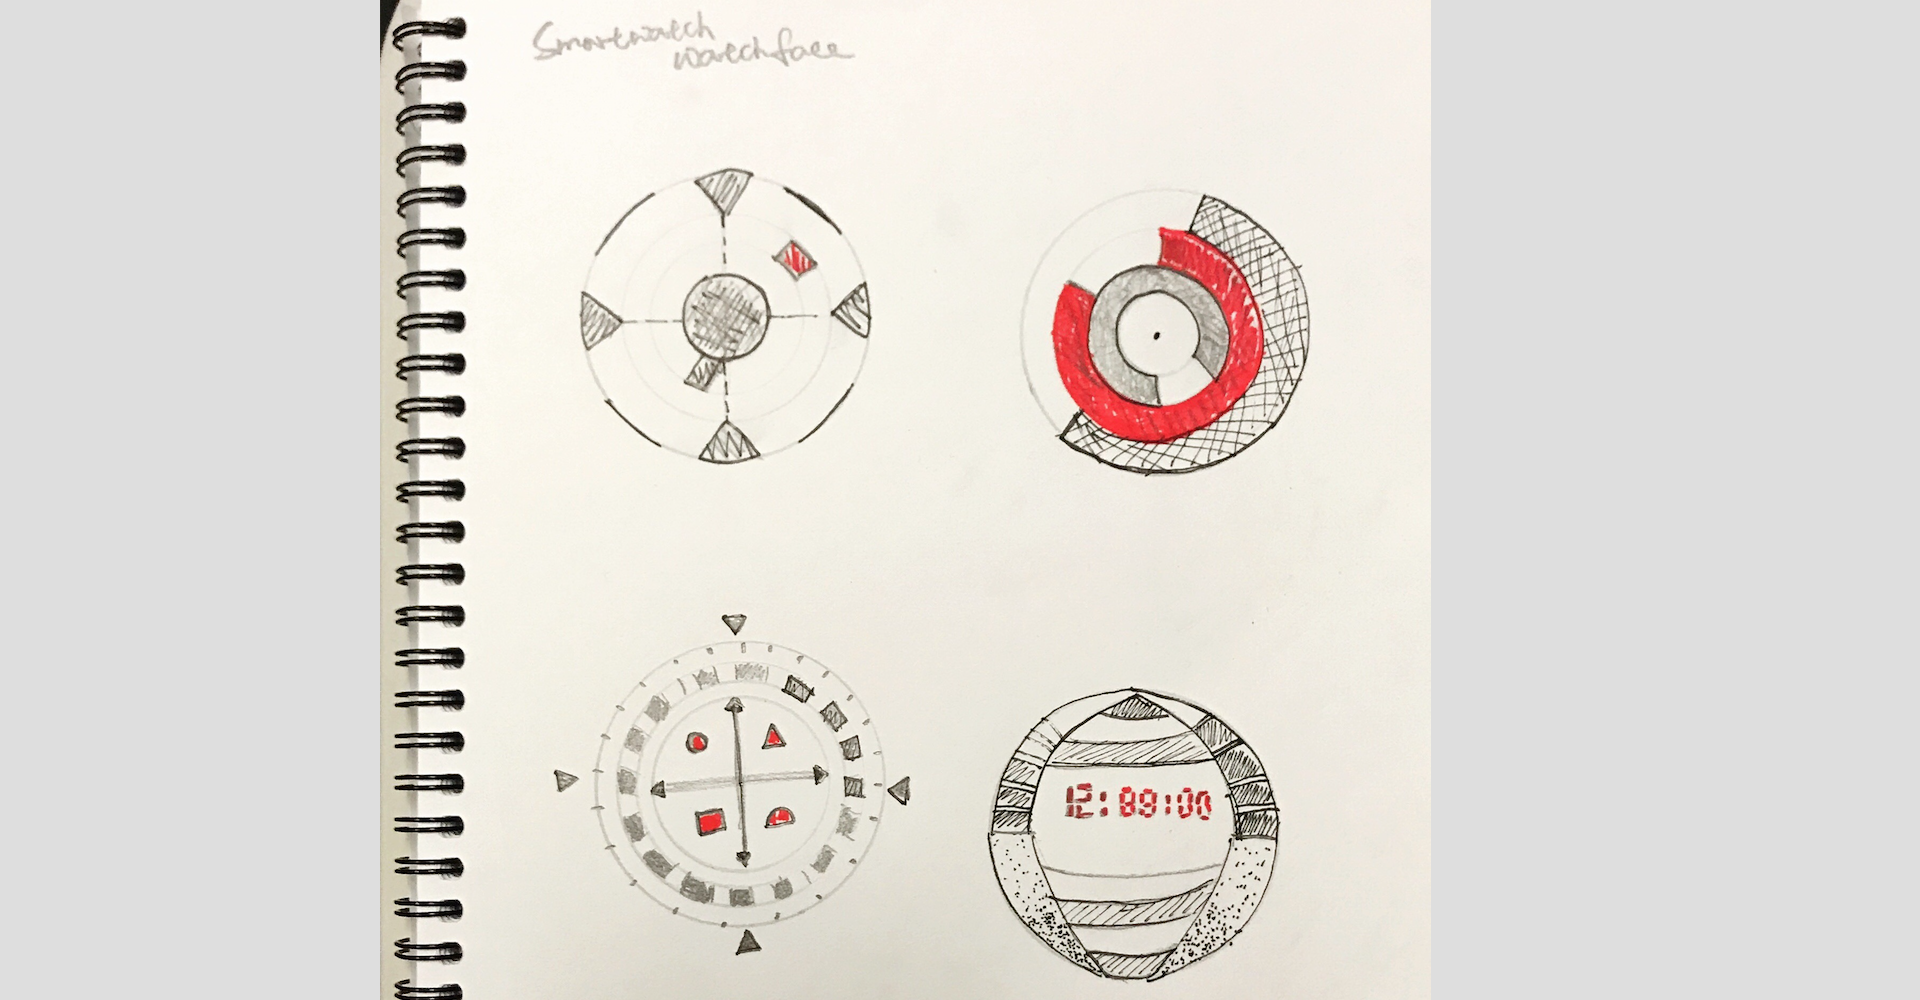 Smartwatch
watchface
12:89:00